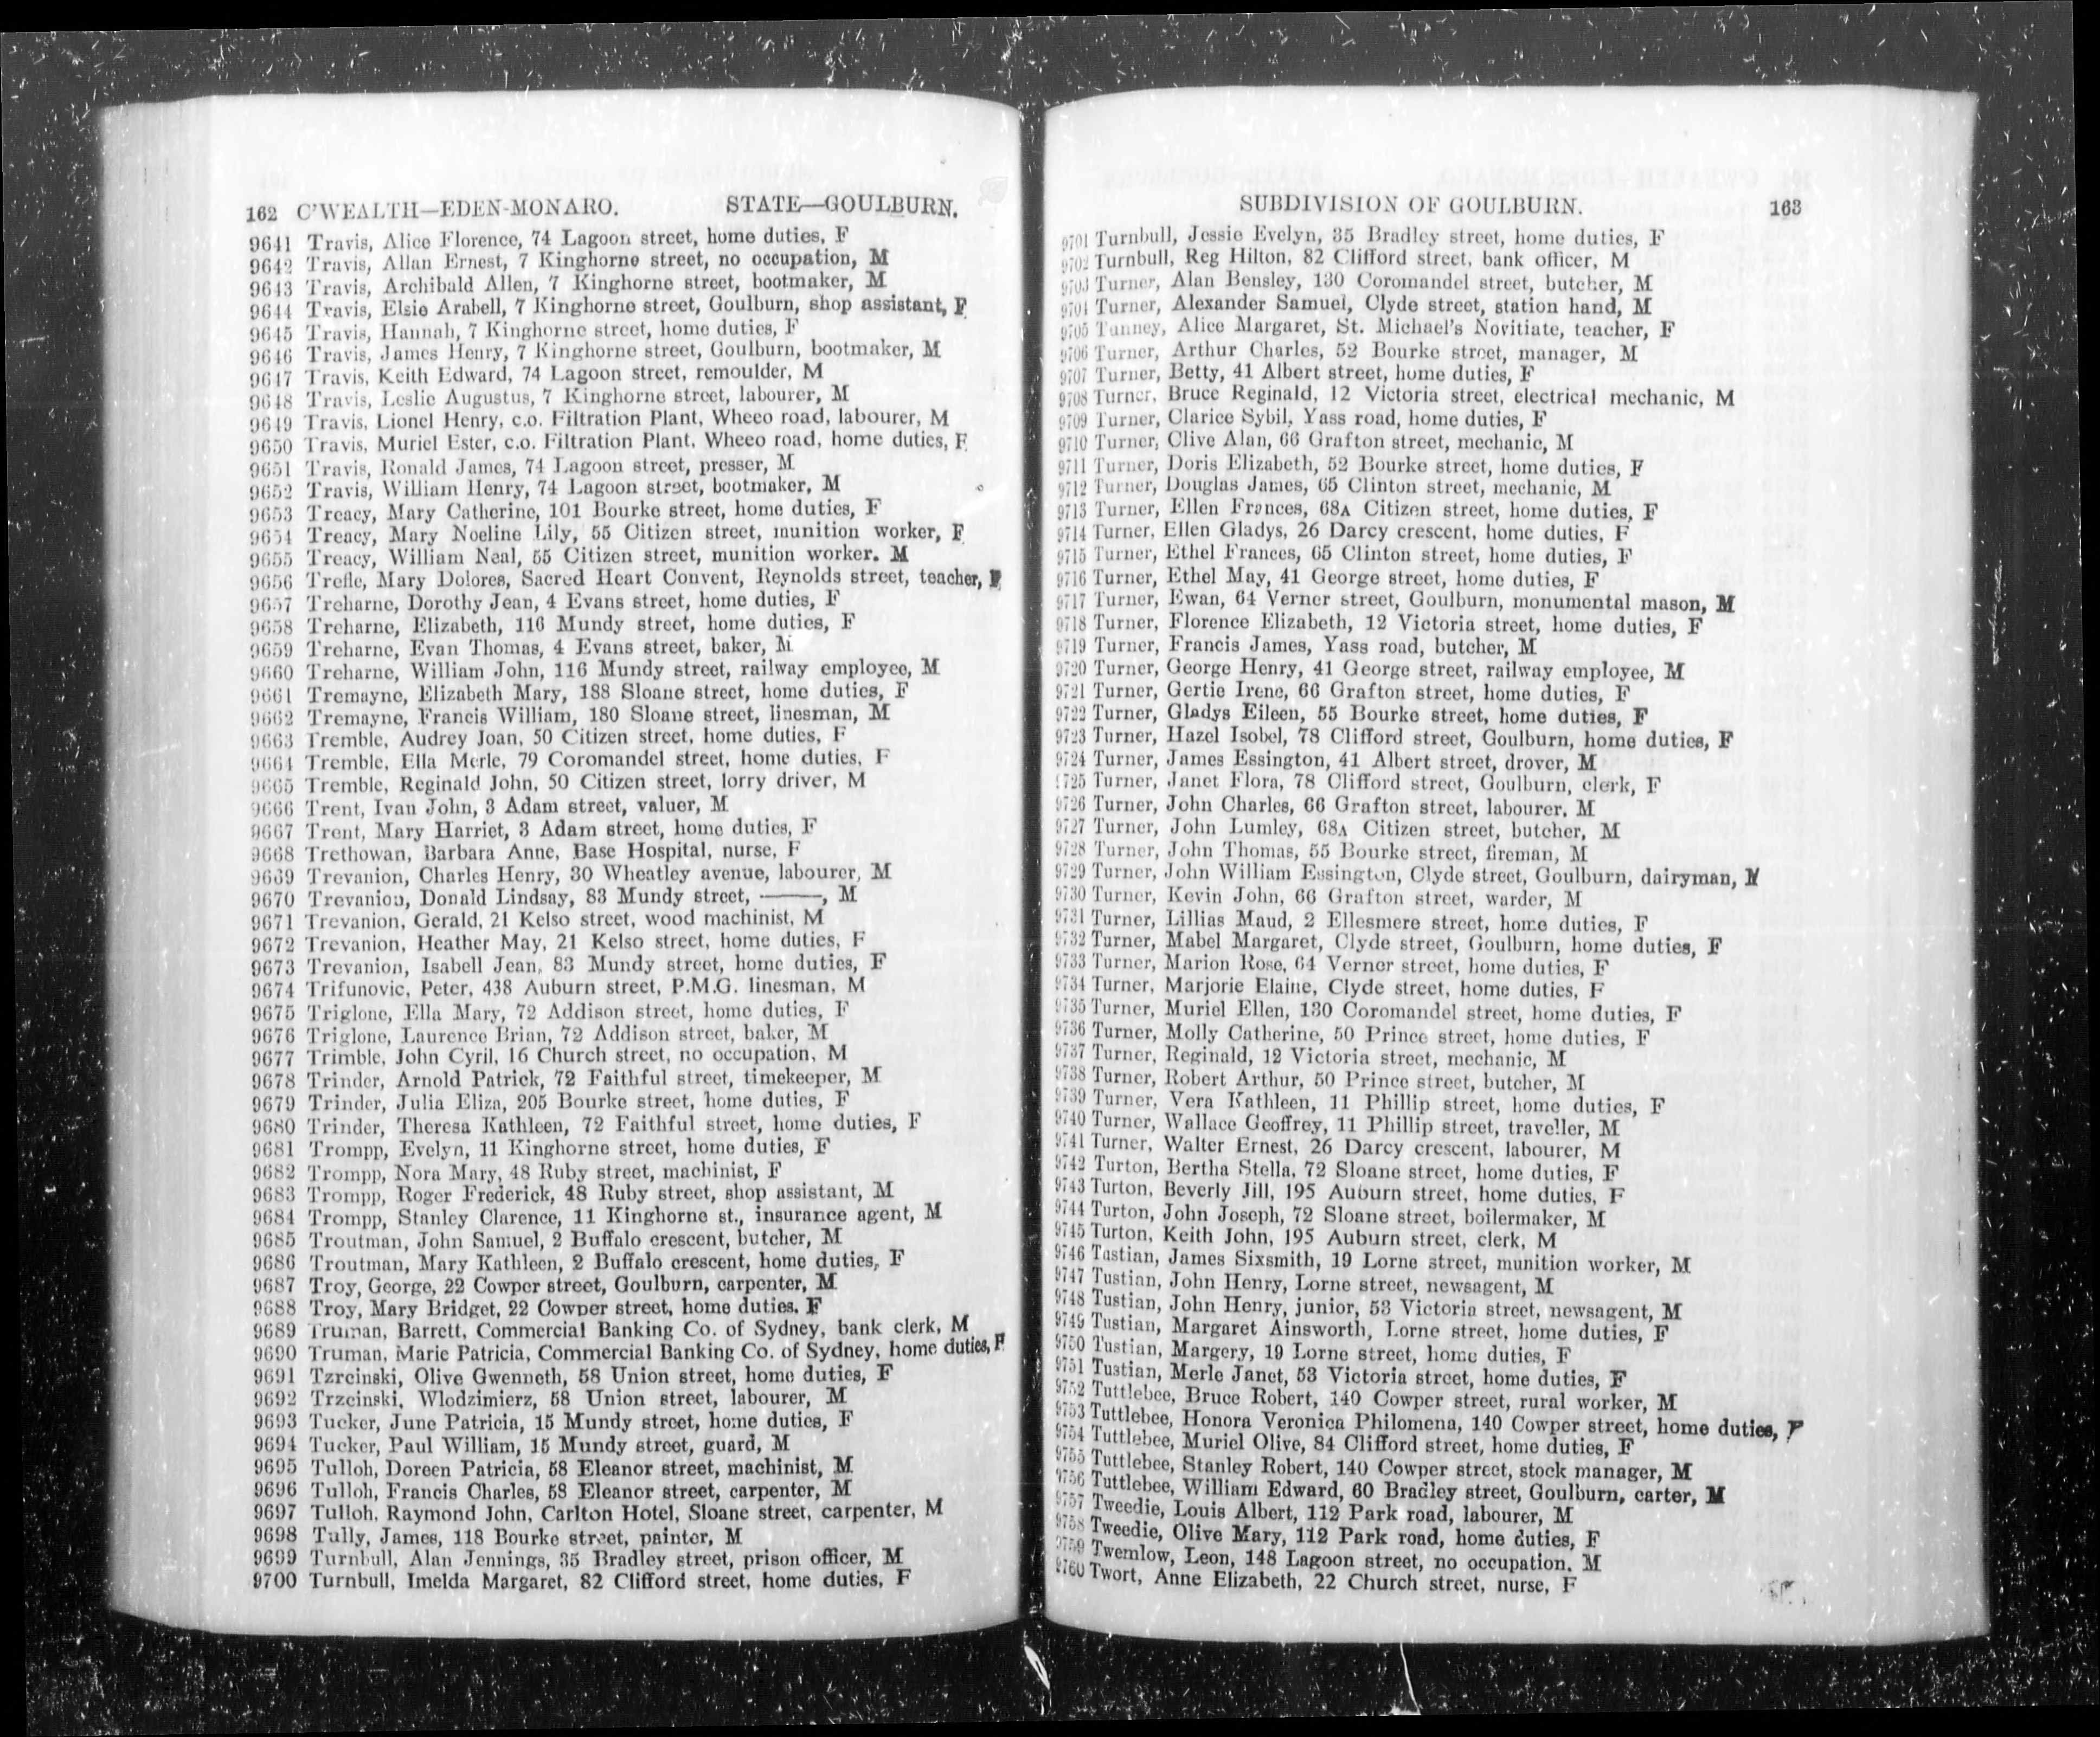 162 C'WEALTH—EDEN-MONARO. STATE—GOULBURN.
9641 Travis, Alice Florence, 74 Lagoon street, home duties, F
9642 Travis, Allan Ernest, 7 Kinghorne street, no occupation, M
9643 Travis, Archibald Allen, 7 Kinghorne street, bootmaker, M
9644 Travis, Elsie Arabell, 7 Kinghorne street, Goulburn, shop assistant, F
9645 Travis, Hannah, 7 Kinghorne street, home duties, F
9646 Travis, James Henry, 7 Kinghorne street, Goulburn, bootmaker, M
9647 Travis, Keith Edward, 74 Lagoon street, remoulder, M
9648 Travis, Leslie Augustus, 7 Kinghorne street, labourer, M
9649 Travis, Lionel Henry, c.o. Filtration Plant, Wheeo road, labourer, M
9650 Travis, Muriel Ester, c.o. Filtration Plant, Wheeo road, home duties, F
9651 Travis, Ronald James, 74 Lagoon street, presser, M
9652 Travis, William Henry, 74 Lagoon street, bootmaker, M
9653 Treacy, Mary Catherine, 101 Bourke street, home duties, F
9654 Treacy, Mary Noeline Lily, 55 Citizen street, munition worker, F
9655 Treacy, William Neal, 55 Citizen street, munition worker. M
9656 Trefle, Mary Dolores, Sacred Heart Convent, Reynolds street, teacher, F
9657 Treharne, Dorothy Jean, 4 Evans street, home duties, F
9658 Treharne, Elizabeth, 116 Mundy street, home duties, F
9659 Treharne, Evan Thomas, 4 Evans street, baker, M
9660 Treharne, William John, 116 Mundy street, railway employee, M
9661 Tremayne, Elizabeth Mary, 188 Sloane street, home duties, F
9662 Tremayne, Francis William, 180 Sloane street, linesman, M
9663 Tremble, Audrey Joan, 50 Citizen street, home duties, F
9664 Tremble, Ella Merle, 79 Coromandel street, home duties, F
9665 Tremble, Reginald John, 50 Citizen street, lorry driver, M
9666 Trent, Ivan John, 3 Adam street, valuer, M
9667 Trent, Mary Harriet, 3 Adam street, home duties, F
9668 Trethowan, Barbara Anne, Base Hospital, nurse, F
9669 Trevanion, Charles Henry, 30 Wheatley avenue, labourer, M
9670 Trevanion, Donald Lindsay, 83 Mundy street, ———, M
9671 Trevanion, Gerald, 21 Kelso street, wood machinist, M
9672 Trevanion, Heather May, 21 Kelso street, home duties, F
9673 Trevanion, Isabell Jean, 83 Mundy street, home duties, F
9674 Trifunovic, Peter, 438 Auburn street, P.M.G. linesman, M
9675 Triglone, Ella Mary, 72 Addison street, home duties, F
9676 Triglone, Laurence Brian, 72 Addison street, baker, M
9677 Trimble, John Cyril, 16 Church street, no occupation, M
9678 Trinder, Arnold Patrick, 72 Faithful street, timekeeper, M
9679 Trinder, Julia Eliza, 205 Bourke street, home duties, F
9680 Trinder, Theresa Kathleen, 72 Faithful street, home duties, F
9681 Trompp, Evelyn, 11 Kinghorne street, home duties, F
9682 Trompp, Nora Mary, 48 Ruby street, machinist, F
9683 Trompp, Roger Frederick, 48 Ruby street, shop assistant, M
9684 Trompp, Stanley Clarence, 11 Kinghorne st., insurance agent, M
9685 Troutman, John Samuel, 2 Buffalo crescent, butcher, M
9686 Troutman, Mary Kathleen, 2 Buffalo crescent, home duties, F
9687 Troy, George, 22 Cowper street, Goulburn, carpenter, M
9688 Troy, Mary Bridget, 22 Cowper street, home duties, F
9689 Truman, Barrett, Commercial Banking Co. of Sydney, bank clerk, M
9690 Truman, Marie Patricia, Commercial Banking Co. of Sydney, home duties, F
9691 Tzrcinski, Olive Gwenneth, 58 Union street, home duties, F
9692 Trzcinski, Wlodzimierz, 58 Union street, labourer, M
9693 Tucker, June Patricia, 15 Mundy street, home duties, F
9694 Tucker, Paul William, 15 Mundy street, guard, M
9695 Tulloh, Doreen Patricia, 58 Eleanor street, machinist, M
9696 Tulloh, Francis Charles, 58 Eleanor street, carpenter, M
9697 Tulloh, Raymond John, Carlton Hotel, Sloane street, carpenter, M
9698 Tully, James, 118 Bourke street, painter, M
9699 Turnbull, Alan Jennings, 35 Bradley street, prison officer, M
9700 Turnbull, Imelda Margaret, 82 Clifford street, home duties, F
SUBDIVISION OF GOULBURN. 163
9701 Turnbull, Jessie Evelyn, 35 Bradley street, home duties, F
9702 Turnbull, Reg Hilton, 82 Clifford street, bank officer, M
9703 Turner, Alan Bensley, 130 Coromandel street, butcher, M
9704 Turner, Alexander Samuel, Clyde street, station hand, M
9705 Tunney, Alice Margaret, St. Michael's Novitiate, teacher, F
9706 Turner, Arthur Charles, 52 Bourke street, manager, M
9707 Turner, Betty, 41 Albert street, home duties, F
9708 Turner, Bruce Reginald, 12 Victoria street, electrical mechanic, M
9709 Turner, Clarice Sybil, Yass road, home duties, F
9710 Turner, Clive Alan, 66 Grafton street, mechanic, M
9711 Turner, Doris Elizabeth, 52 Bourke street, home duties, F
9712 Turner, Douglas James, 65 Clinton street, mechanic, M
9713 Turner, Ellen Frances, 68A Citizen street, home duties, F
9714 Turner, Ellen Gladys, 26 Darcy crescent, home duties, F
9715 Turner, Ethel Frances, 65 Clinton street, home duties, F
9716 Turner, Ethel May, 41 George street, home duties, F
9717 Turner, Ewan, 64 Verner street, Goulburn, monumental mason, M
9718 Turner, Florence Elizabeth, 12 Victoria street, home duties, F
9719 Turner, Francis James, Yass road, butcher, M
9720 Turner, George Henry, 41 George street, railway employee, M
9721 Turner, Gertie Irene, 66 Grafton street, home duties, F
9722 Turner, Gladys Eileen, 55 Bourke street, home duties, F
9723 Turner, Hazel Isobel, 78 Clifford street, Goulburn, home duties, F
9724 Turner, James Essington, 41 Albert street, drover, M
9725 Turner, Janet Flora, 78 Clifford street, Goulburn, clerk, F
9726 Turner, John Charles, 66 Grafton street, labourer, M
9727 Turner, John Lumley, 68A Citizen street, butcher, M
9728 Turner, John Thomas, 55 Bourke street, fireman, M
9729 Turner, John William Essington, Clyde street, Goulburn, dairyman, M
9730 Turner, Kevin John, 66 Grafton street, warder, M
9731 Turner, Lillias Maud, 2 Ellesmere street, home duties, F
9732 Turner, Mabel Margaret, Clyde street, Goulburn, home duties, F
9733 Turner, Marion Rose, 64 Verner street, home duties, F
9734 Turner, Marjorie Elaine, Clyde street, home duties, F
9735 Turner, Muriel Ellen, 130 Coromandel street, home duties, F
9736 Turner, Molly Catherine, 50 Prince street, home duties, F
9737 Turner, Reginald, 12 Victoria street, mechanic, M
9738 Turner, Robert Arthur, 50 Prince street, butcher, M
9739 Turner, Vera Kathleen, 11 Phillip street, home duties, F
9740 Turner, Wallace Geoffrey, 11 Phillip street, traveller, M
9741 Turner, Walter Ernest, 26 Darcy crescent, labourer, M
9742 Turton, Bertha Stella, 72 Sloane street, home duties, F
9743 Turton, Beverly Jill, 195 Auburn street, home duties, F
9744 Turton, John Joseph, 72 Sloane street, boilermaker, M
9745 Turton, Keith John, 195 Auburn street, clerk, M
9746 Tustian, James Sixsmith, 19 Lorne street, munition worker, M
9747 Tustian, John Henry, Lorne street, newsagent, M
9748 Tustian, John Henry, junior, 53 Victoria street, newsagent, M
9749 Tustian, Margaret Ainsworth, Lorne street, home duties, F
9750 Tustian, Margery, 19 Lorne street, home duties, F
9751 Tustian, Merle Janet, 53 Victoria street, home duties, F
9752 Tuttlebee, Bruce Robert, 140 Cowper street, rural worker, M
9753 Tuttlebee, Honora Veronica Philomena, 140 Cowper street, home duties, F
9754 Tuttlebee, Muriel Olive, 84 Clifford street, home duties, F
9755 Tuttlebee, Stanley Robert, 140 Cowper street, stock manager, M
9756 Tuttlebee, William Edward, 60 Bradley street, Goulburn, carter, M
9757 Tweedie, Louis Albert, 112 Park road, labourer, M
9758 Tweedie, Olive Mary, 112 Park road, home duties, F
9759 Twemlow, Leon, 148 Lagoon street, no occupation, M
9760 Twort, Anne Elizabeth, 22 Church street, nurse, F